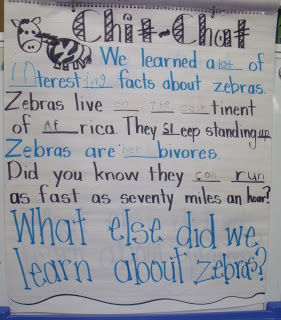 Chit-Chat
We learned a lot of
interesting facts about zebras.
Zebras live on the continent
of Africa. They sleep standing up.
Zebras are herbivores.
Did you know they can run
as fast as seventy miles an hour?
What else did we
learn about zebras?